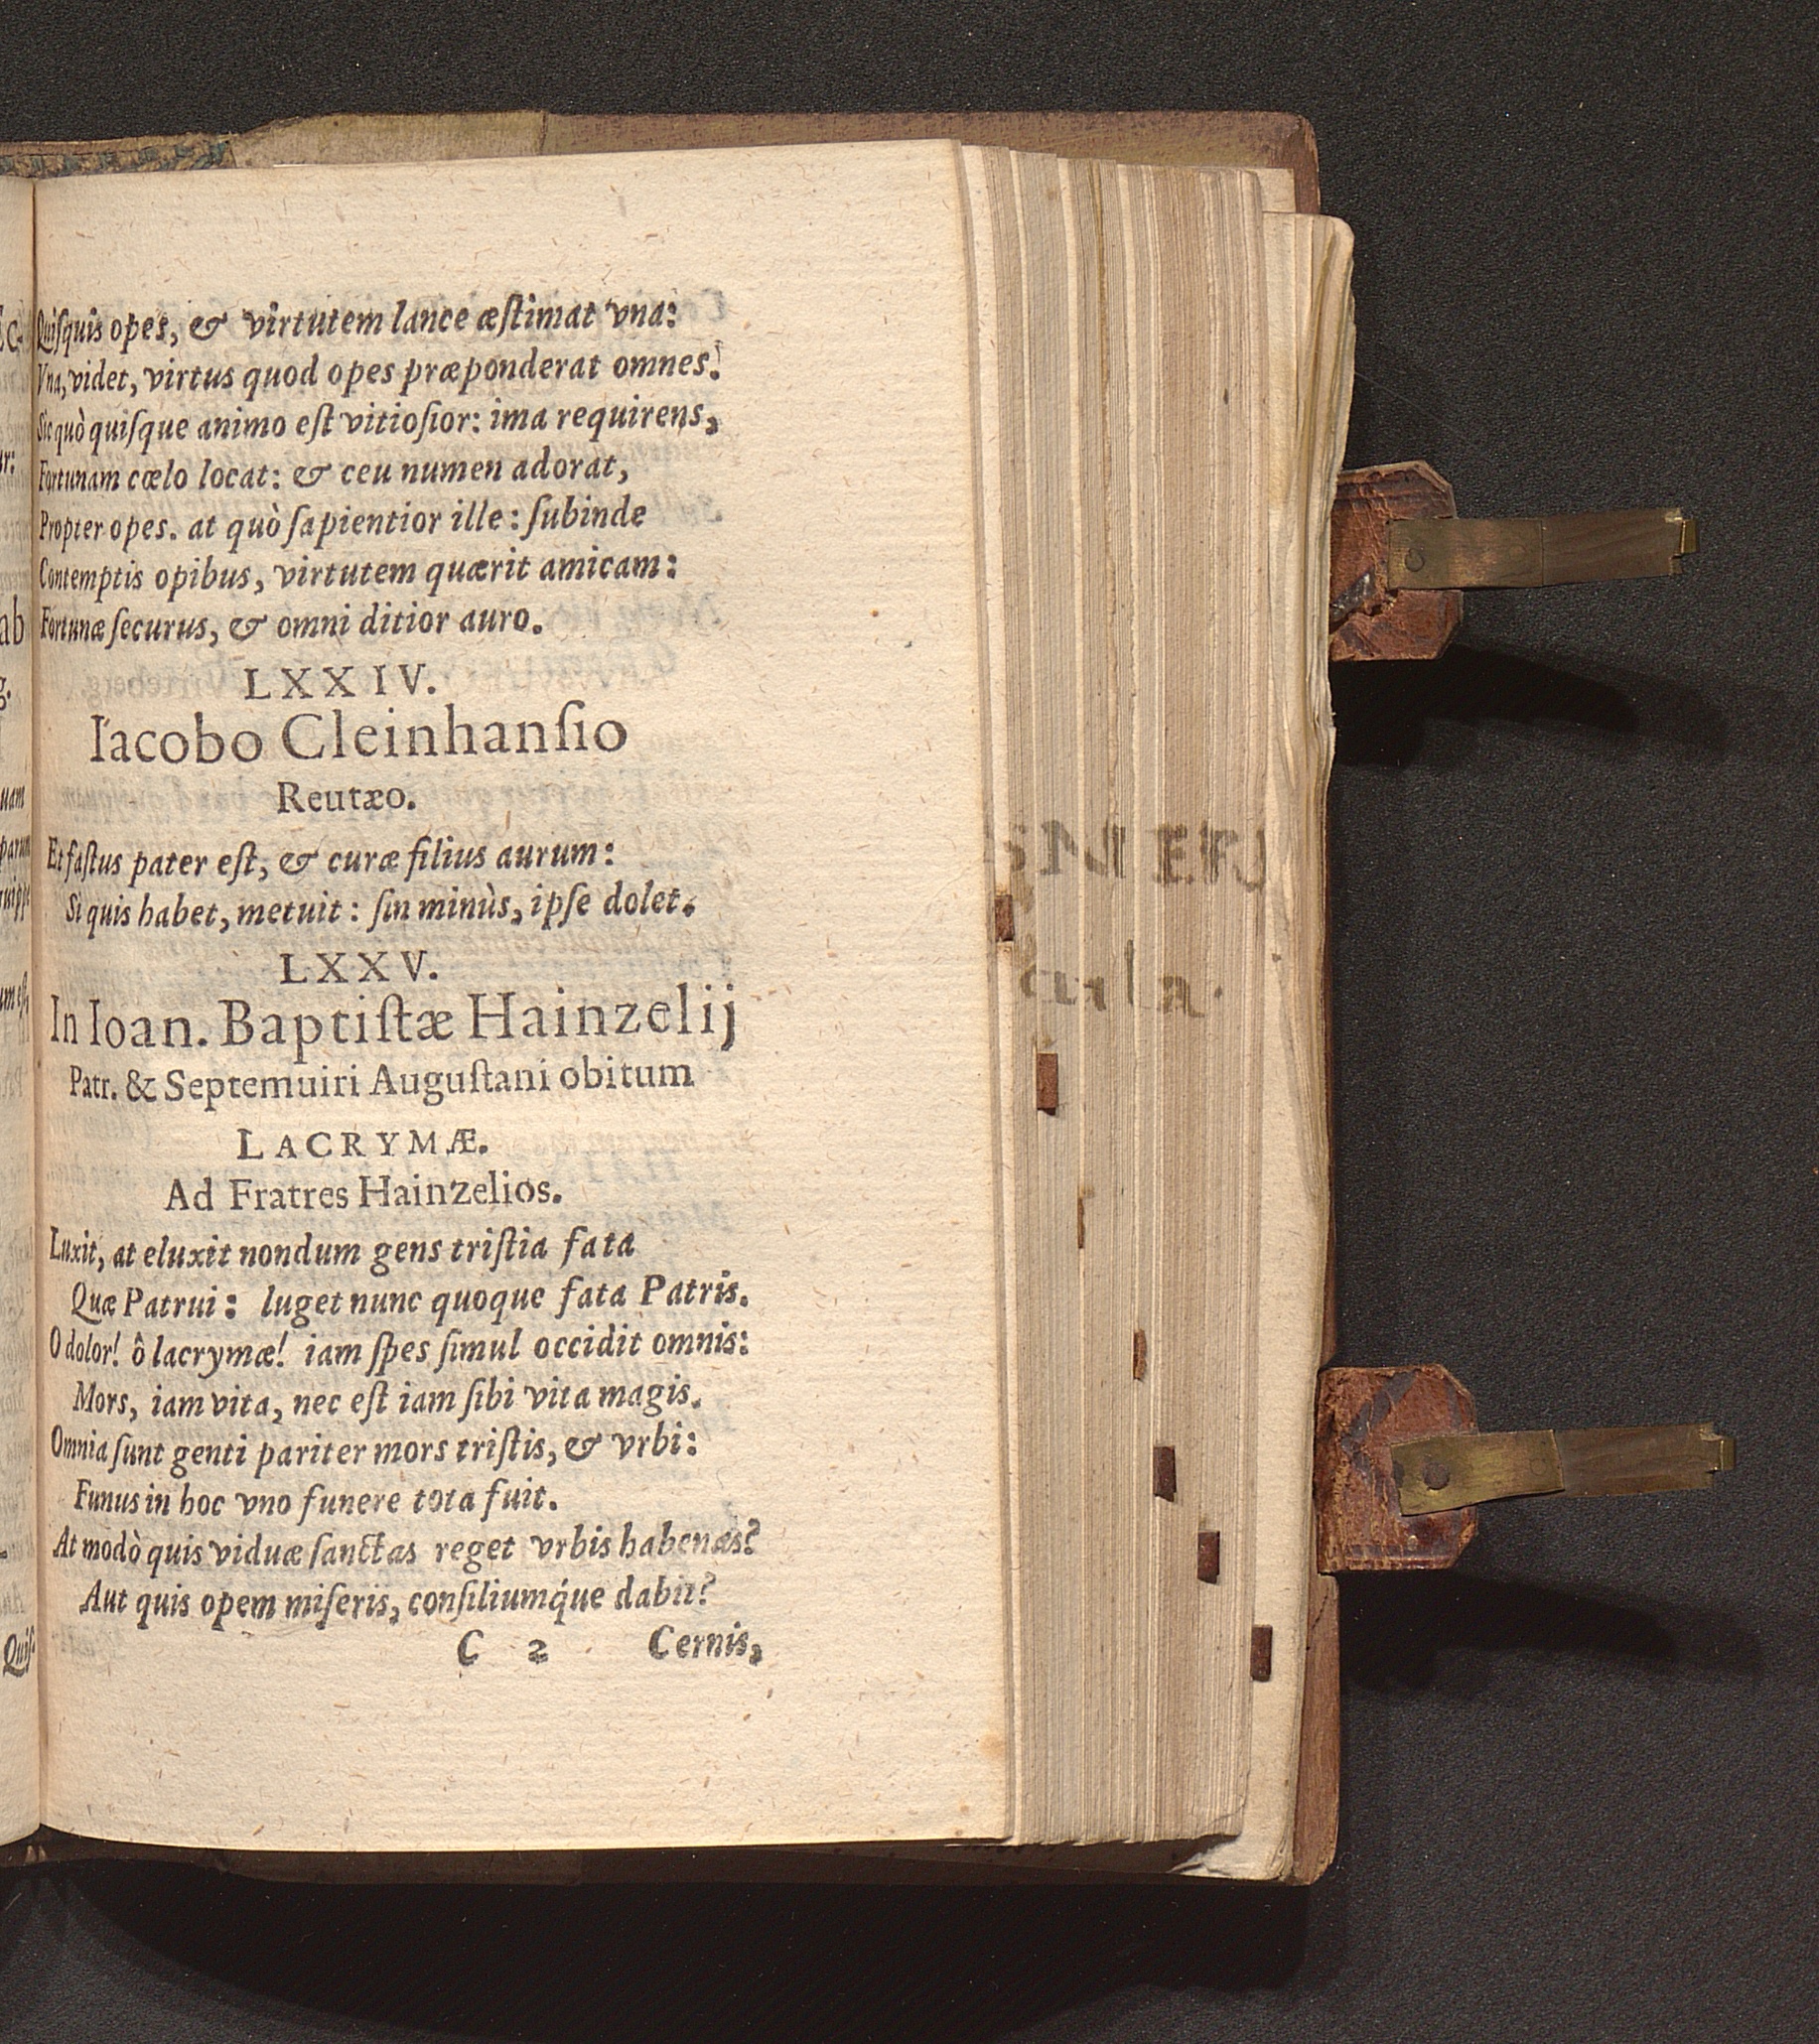 Quiſquis opes, & virtutem lance æſtimat vna:
Vna, videt, virtus quod opes præponderat omnes.
Sic quò quiſque animo eſt vitioſior: ima requirens,
Fortunam cœlo locat: & ceu numen adorat,
Propter opes. at quò ſapientior ille: ſubinde
Contemptis opibus, virtutem quærit amicam:
Fortunæ ſecurus, & omni ditior auro.
LXXIV.
Iacobo Cleinhanſio
Reutæo.
Et faſtus pater eſt, & curæ filius aurum:
Si quis habet, metuit: ſin minùs, ipſe dolet.
LXXV.
In Ioan. Baptiſtæ Hainzelij
Patr. & Septemuiri Auguſtani obitum
LACRYMÆ.
Ad Fratres Hainzelios.
Luxit, at eluxit nondum gens triſtia fata
Quæ Patrui: luget nunc quoque fata Patris.
O dolor! ô lacrymæ! iam ſpes ſimul occidit omnis:
Mors, iam vita, nec eſt iam ſibi vita magis.
Omnia ſunt genti pariter mors triſtis, & vrbi:
Funus in hoc vno funere tota fuit.
At modò quis viduæ ſanctas reget vrbis habenas?
Aut quis opem miſeris, conſiliumq́ue dabit?
C 2 Cernis,